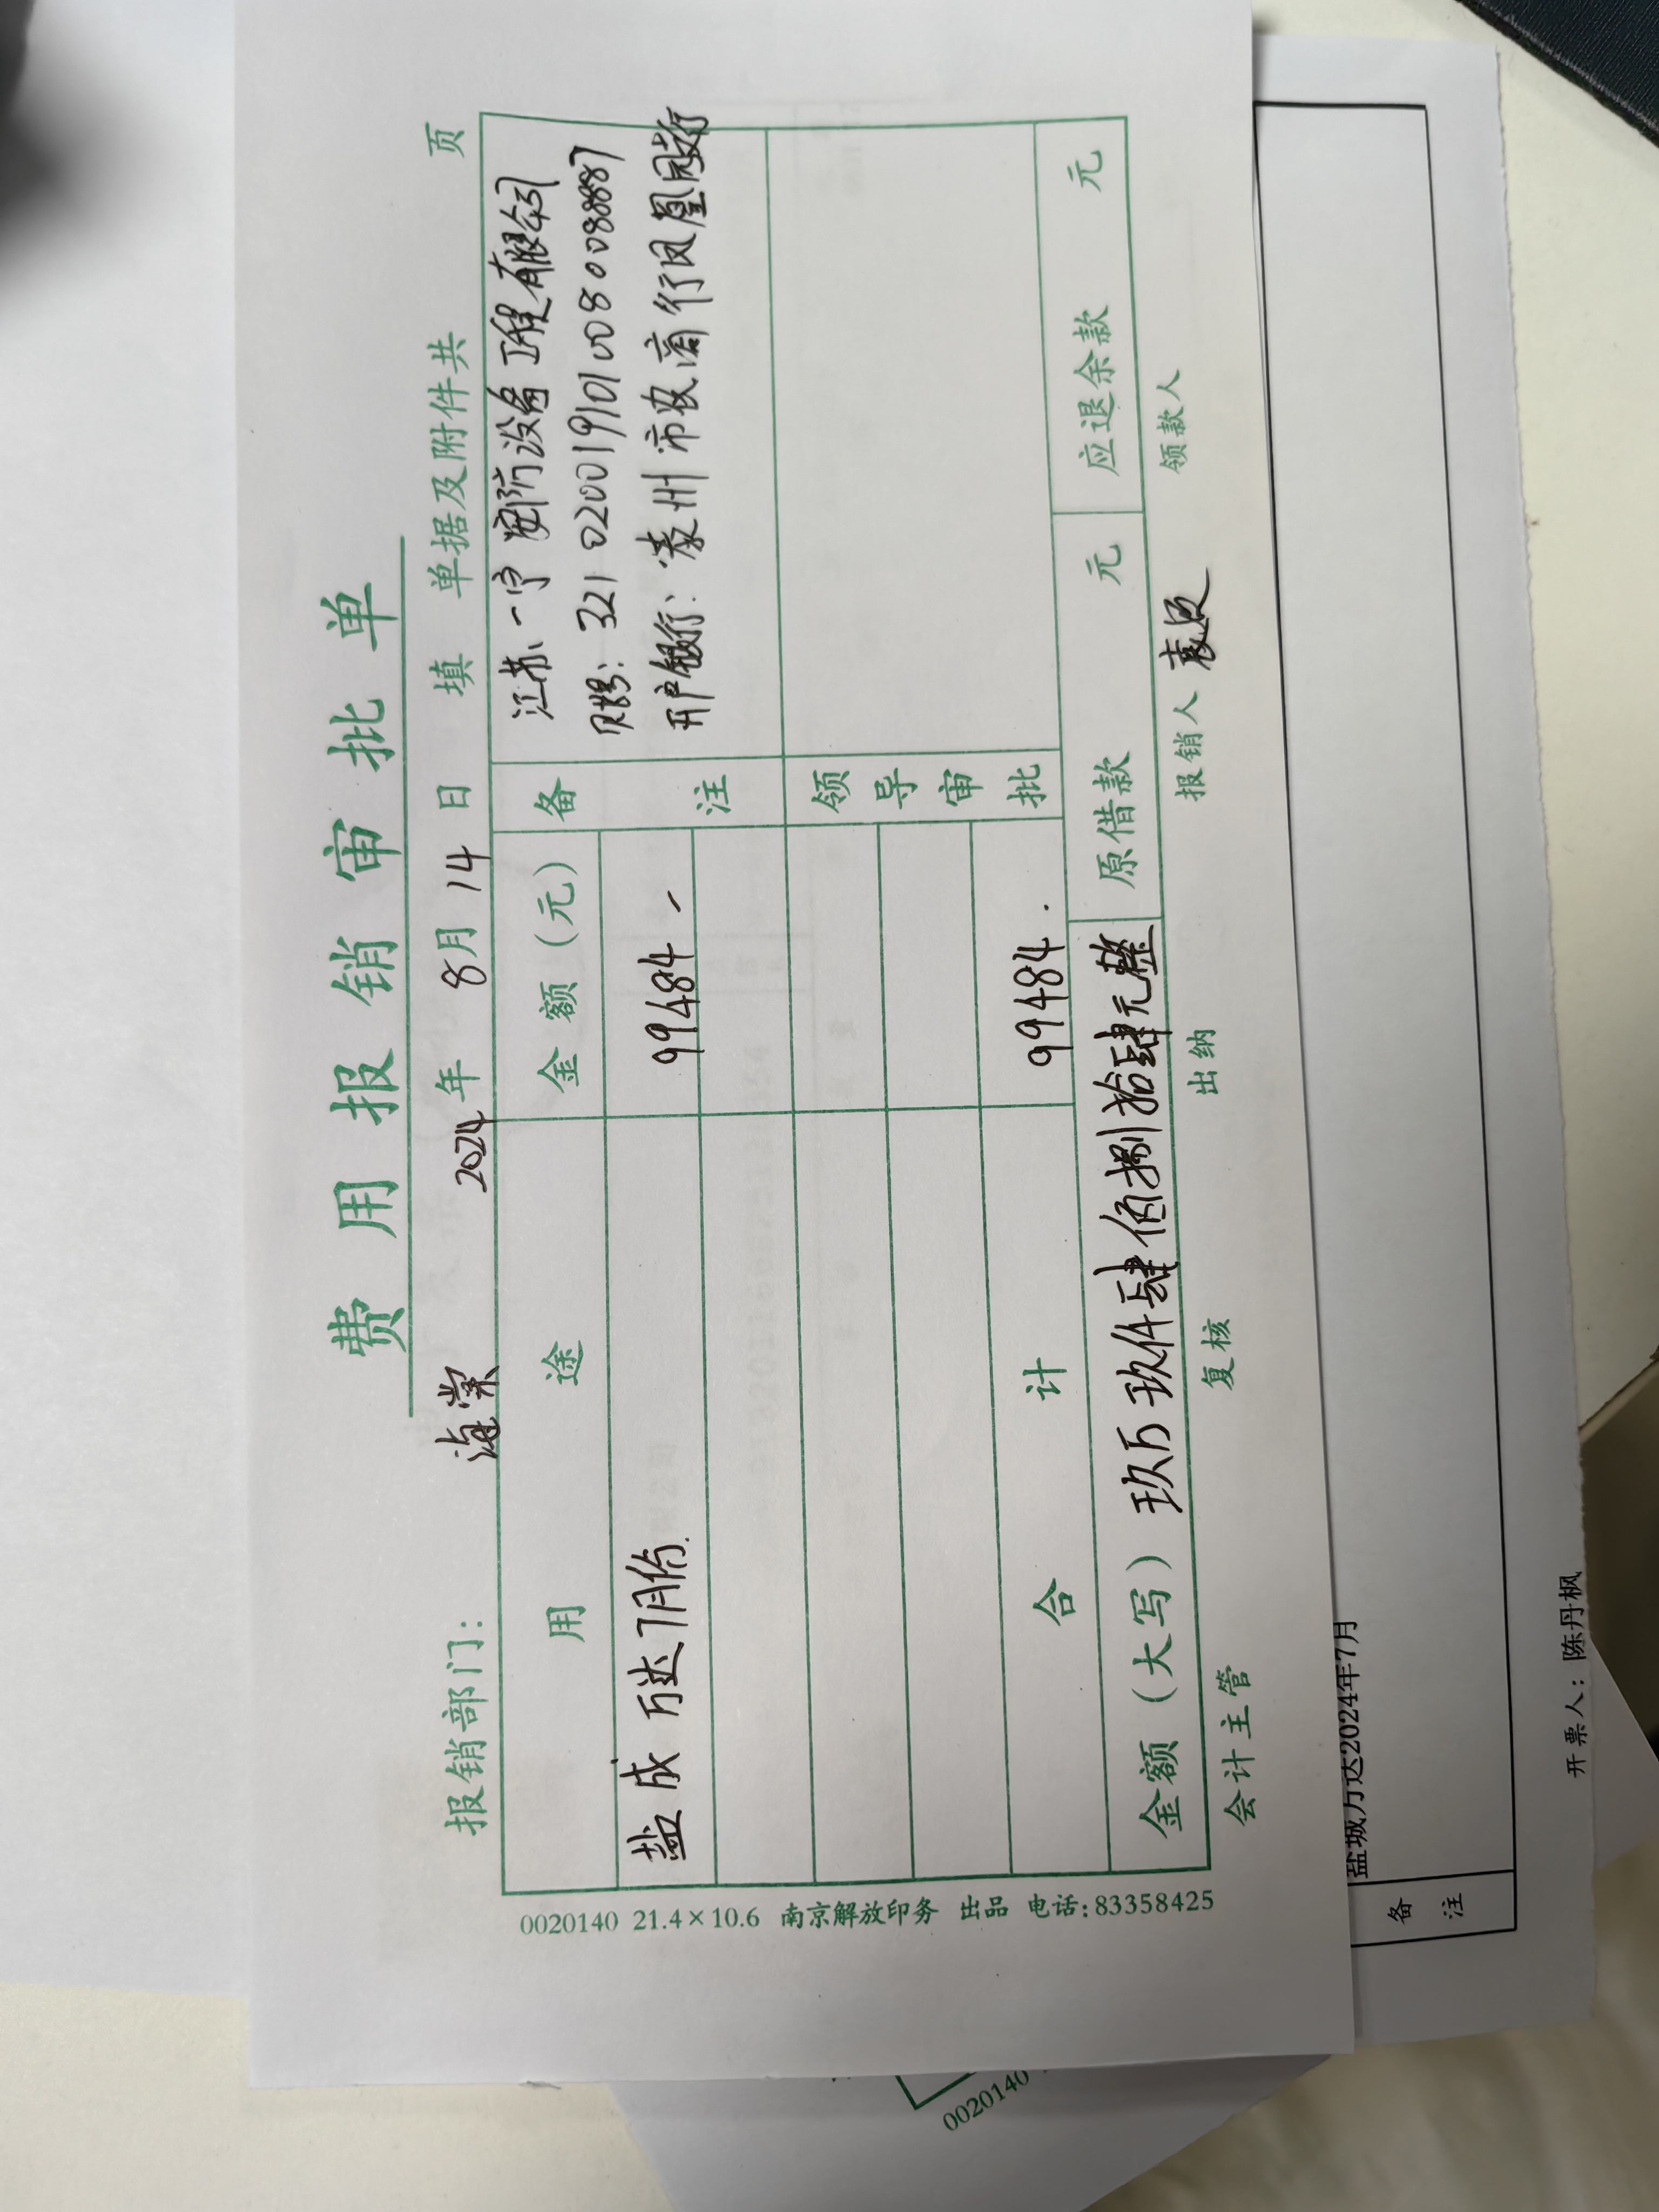 费用报销审批单
报销部门：海棠 2024年8月14日填 单据及附件共 页
用途 金额（元） 备注
盐成万达7月份. 99484 -
江苏一宁安防设备工程有限公司
账号：3210200191010080088887
开户银行：泰州市农商行凤凰园支行
领导审批
合计 99484 .
金额（大写）玖万玖仟肆佰捌拾肆元整 原借款 元 应退余款 元
会计主管 复核 出纳 报销人 领款人
0020140 21.4×10.6 南京解放印务 出品 电话:83358425
备注
盐城万达2024年7月
开票人：陈丹枫
0020140